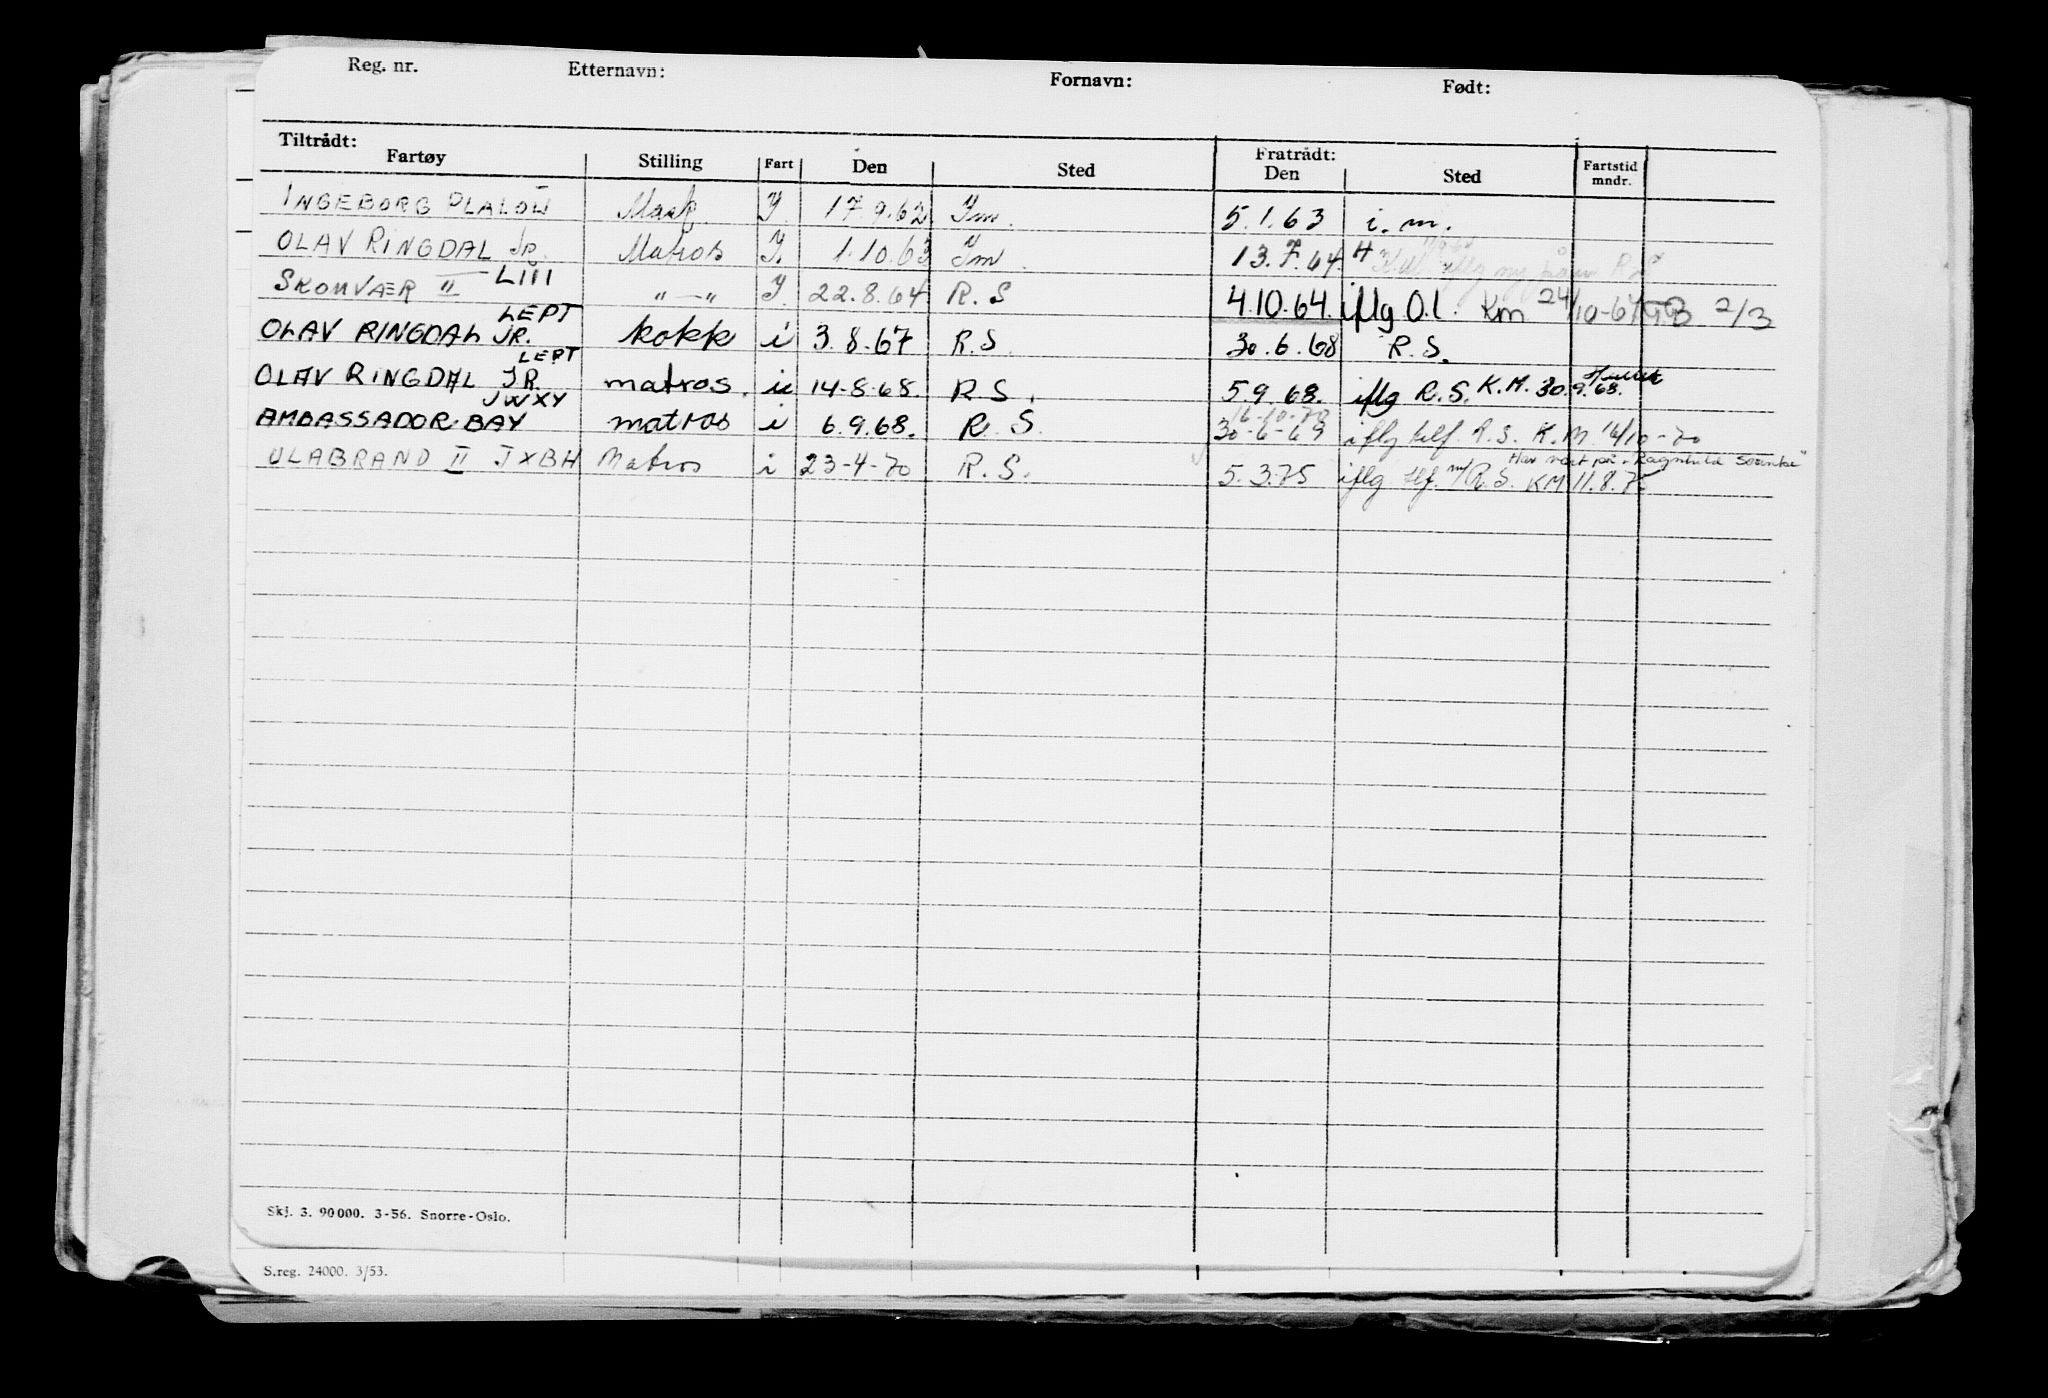 Reg. nr. Etternavn: Fornavn: Født:
Tiltrådt: Fratrådt:
Fartøy Stilling Fart Den Sted Den Sted Fartstid mndr.
INGEBORG PLALOW 17.9.62 Im. 5.1.63 i.m.
OLAV RINGDAL JR. Matros Y. 1.10.63 Im. 13.7.64. H
SKOMVÆR II LIII " — " Y. 22.8.64 R.S 4.10.64. iflg O.l. Km 24/10-64 2/3
LEPT
OLAV RINGDAL JR. kokk i 3.8.67 R.S. 30.6.68 R.S.
LEPT
OLAV RINGDAL JR. matros. u 14-8-68. R S. 5 9. 68. iflg R.S. K.M. 30.9.68.
JWXY 16-10-70
AMBASSADOR BAY matros i 6.9.68. R. S. 30-6-69 iflg telf. R.S. K.M. 16/10-70
Har vært på "Ragnhild Brøvig"
ULABRAND II JXBH Matros i 23-4-70 R.S. 5.3.75 iflg. tlf. m/R.S. KM 11.8.75
Skj. 3. 90000. 3-56. Snorre-Oslo.
S.reg. 24000. 3/53.